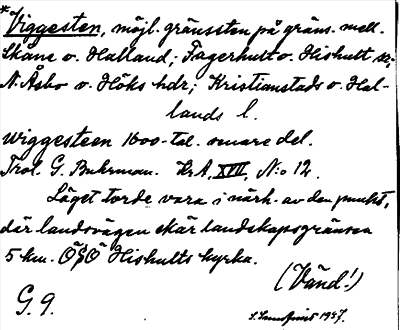 *Viggesten, möjl. gränssten på gräns. mell.
Skåne o. Halland; Fagerhult o. Hishult sr;
N. Åsbo o. Höks hdr; Kristianstads o. Hal-
lands l.
wiggesteen 1600-tal. senare del.
Trol. G. Buhrman. KrA, XVII, N:o 12.
Läget torde vara i närh. av den punkt,
där landsvägen skär landskapsgränsen
5 km. ÖSÖ Hishults kyrka.
(Vänd!)
G. 9.
1957.